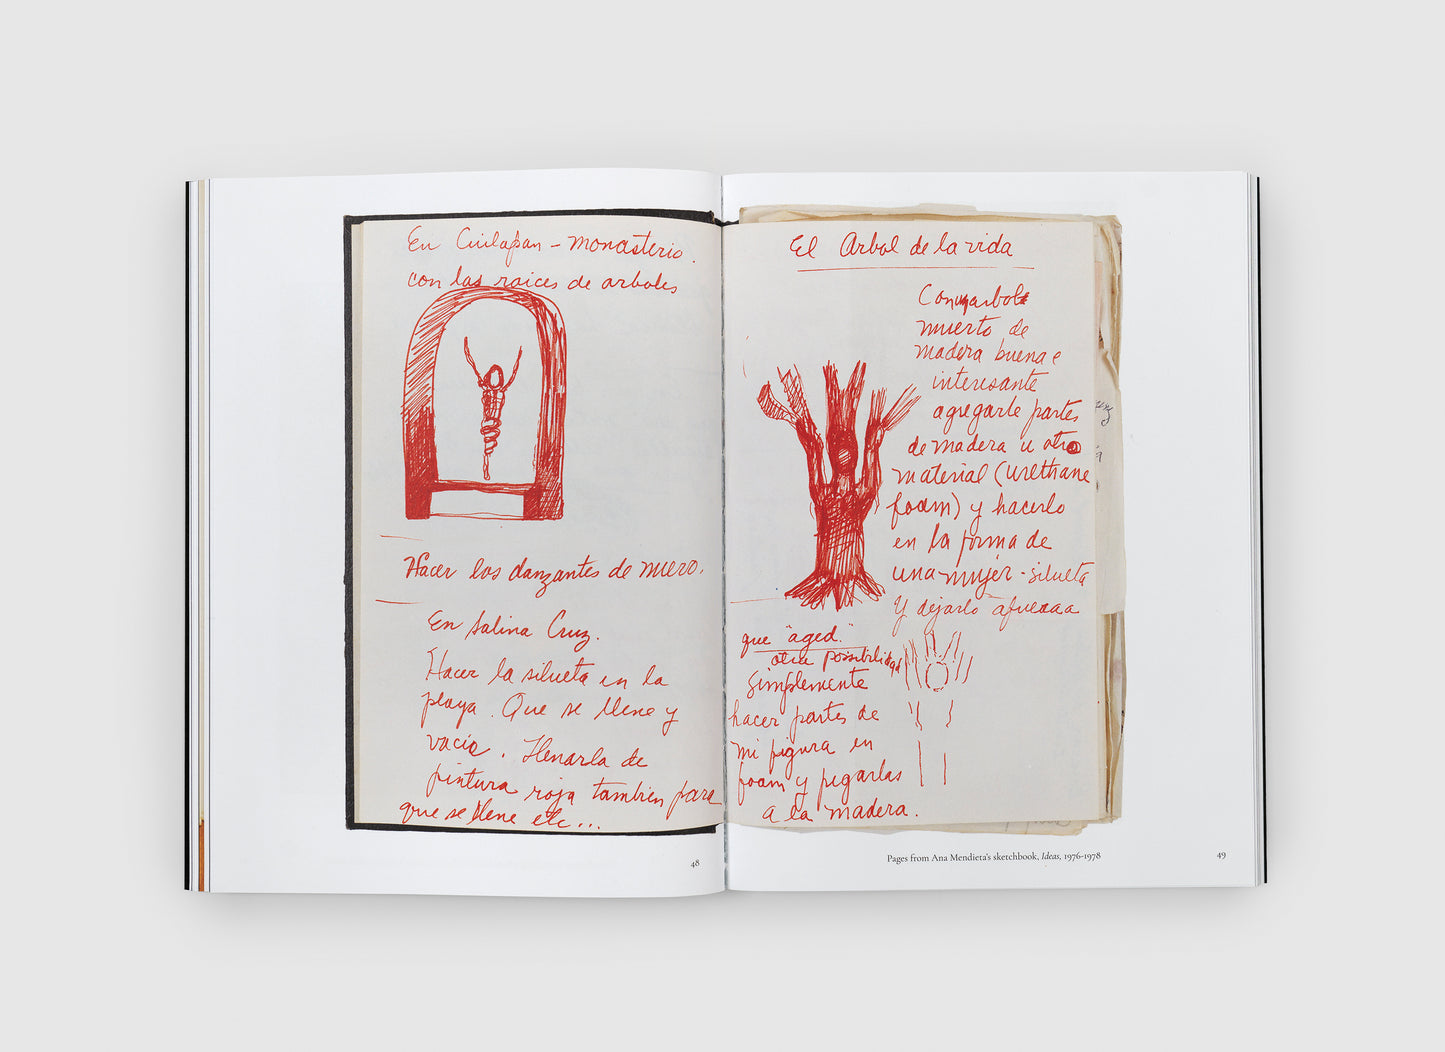 En Cuilapan – monasterio.
con las raices de arboles
Hacer los danzantes de nuevo.
En Salina Cruz.
Hacer la silueta en la
playa. Que se llene y
vacie. Llenarla de
pintura roja tambien para
que se llene etc...
48
El Arbol de la vida
Con un arbol
muerto de
madera buena e
interesante
agregarle partes
de madera u otro
material (urethane
foam) y hacerlo
en la forma de
una mujer - silueta
Y dejarlo afueraaa
que "aged."
otra possibilidad
Simplemente
hacer partes de
mi figura en
foam y pegarlas
a la madera.
Pages from Ana Mendieta's sketchbook, Ideas, 1976-1978
49